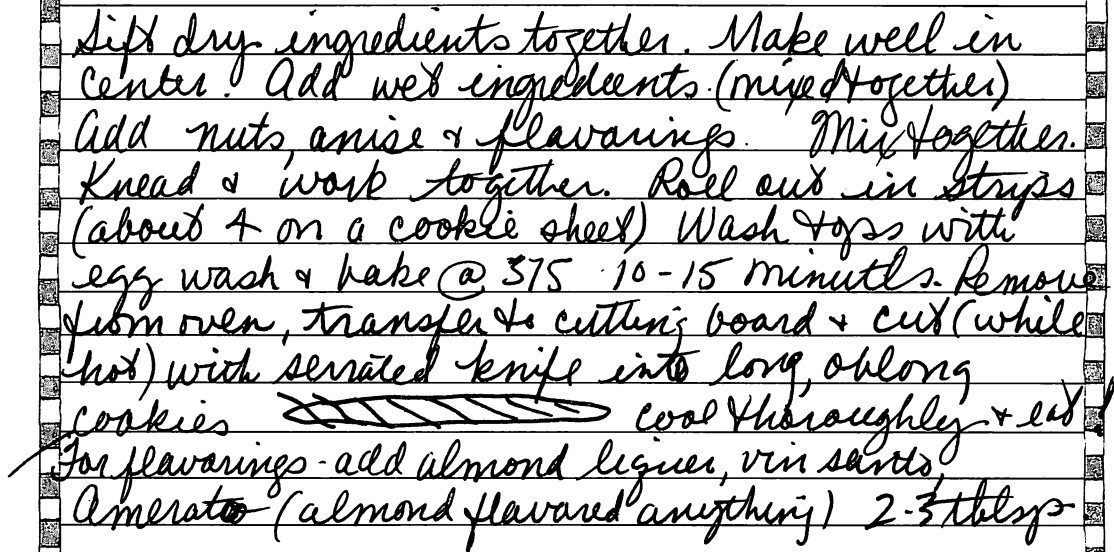 Sift dry ingredients together. Make well in
center. Add wet ingredients (mixed together)
Add nuts, anise & flavarings. Mix together.
Knead & work together. Roll out in strips
(about 4 on a cookie sheet) Wash tops with
egg wash & bake @ 375 10-15 minutes. Remove
from oven, transfer to cutting board & cut (while
hot) with serrated knife into long, oblong
cookies cool thoroughly & eat!
For flavarings - add almond liquer, vin santo,
Amerato (almond flavared anything) 2-3 tblsp